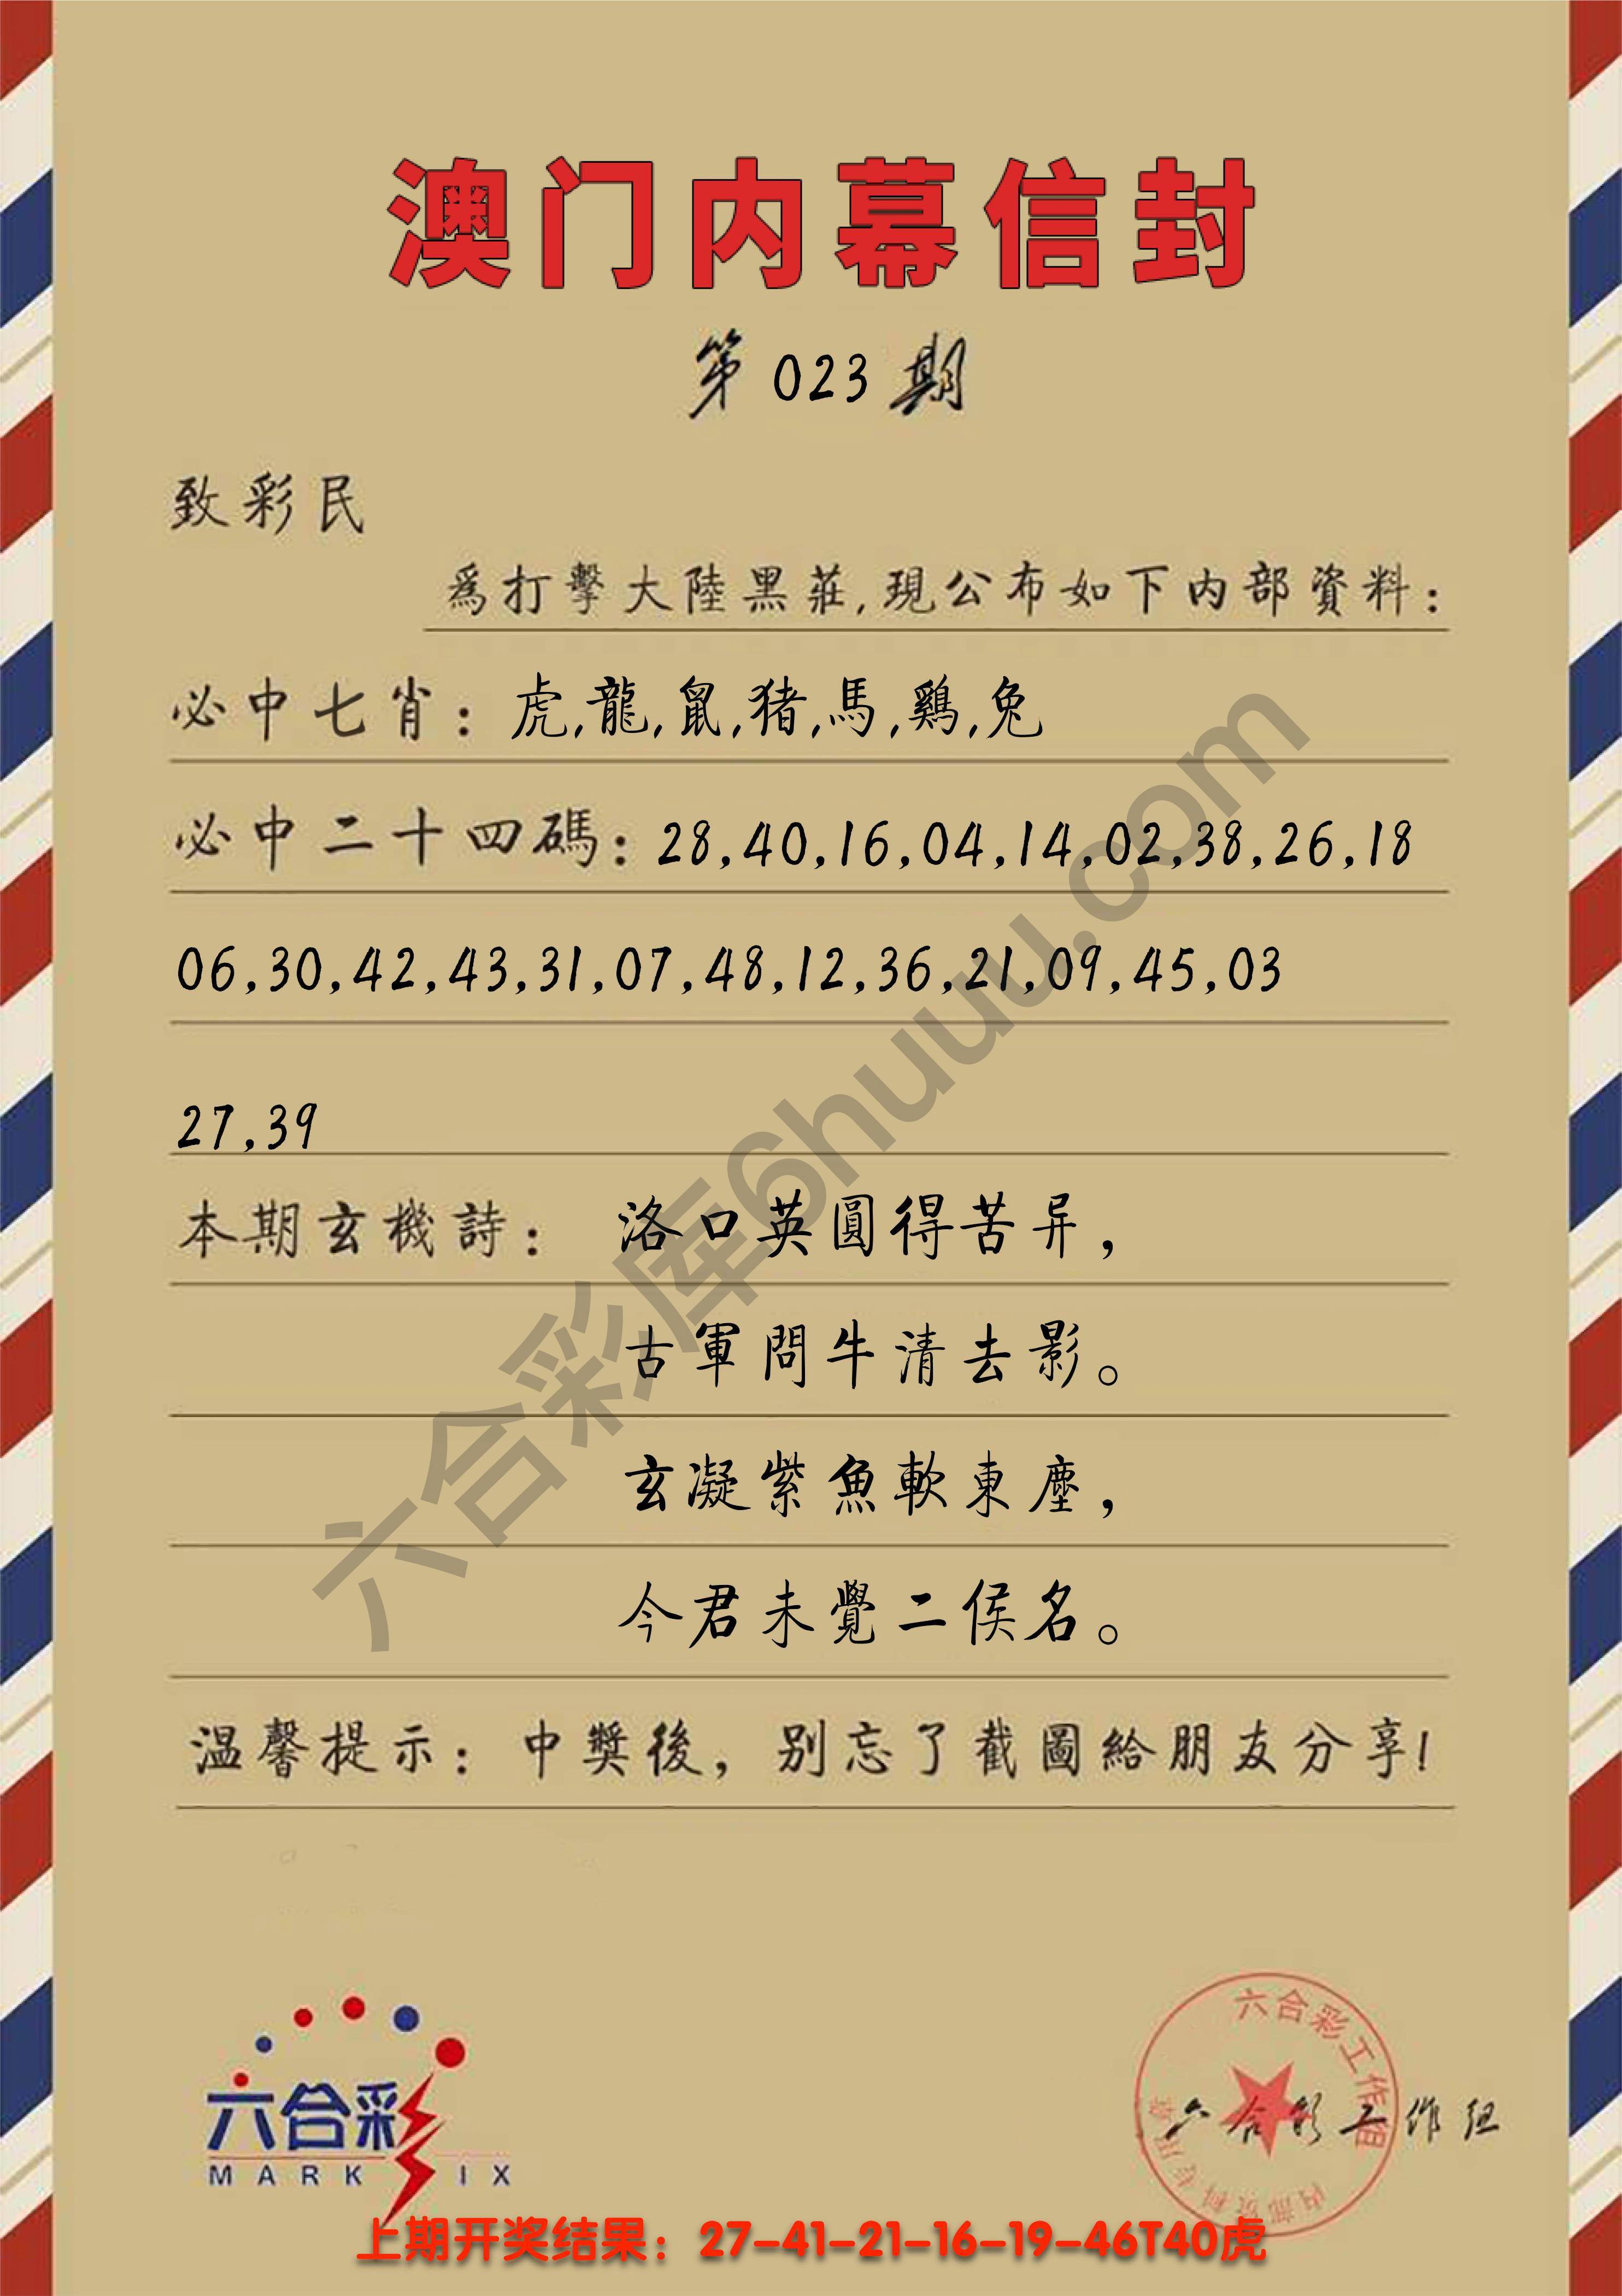 澳门内幕信封
第023期
致彩民
爲打擊大陸黑莊,現公布如下内部資料:
必中七肖:虎,龍,鼠,猪,馬,鷄,兔
必中二十四碼:28,40,16,04,14,02,38,26,18
06,30,42,43,31,07,48,12,36,21,09,45,03
27,39
本期玄機詩: 洛口英圓得苦异,
古軍問牛清去影。
玄凝紫魚軟東塵,
今君未覺二侯名。
温馨提示:中獎後,别忘了截圖給朋友分享!
六合彩库6huuu.com
六合彩
MARK SIX
六合彩工作组
六合彩工作组
上期开奖结果:27-41-21-16-19-46T40虎